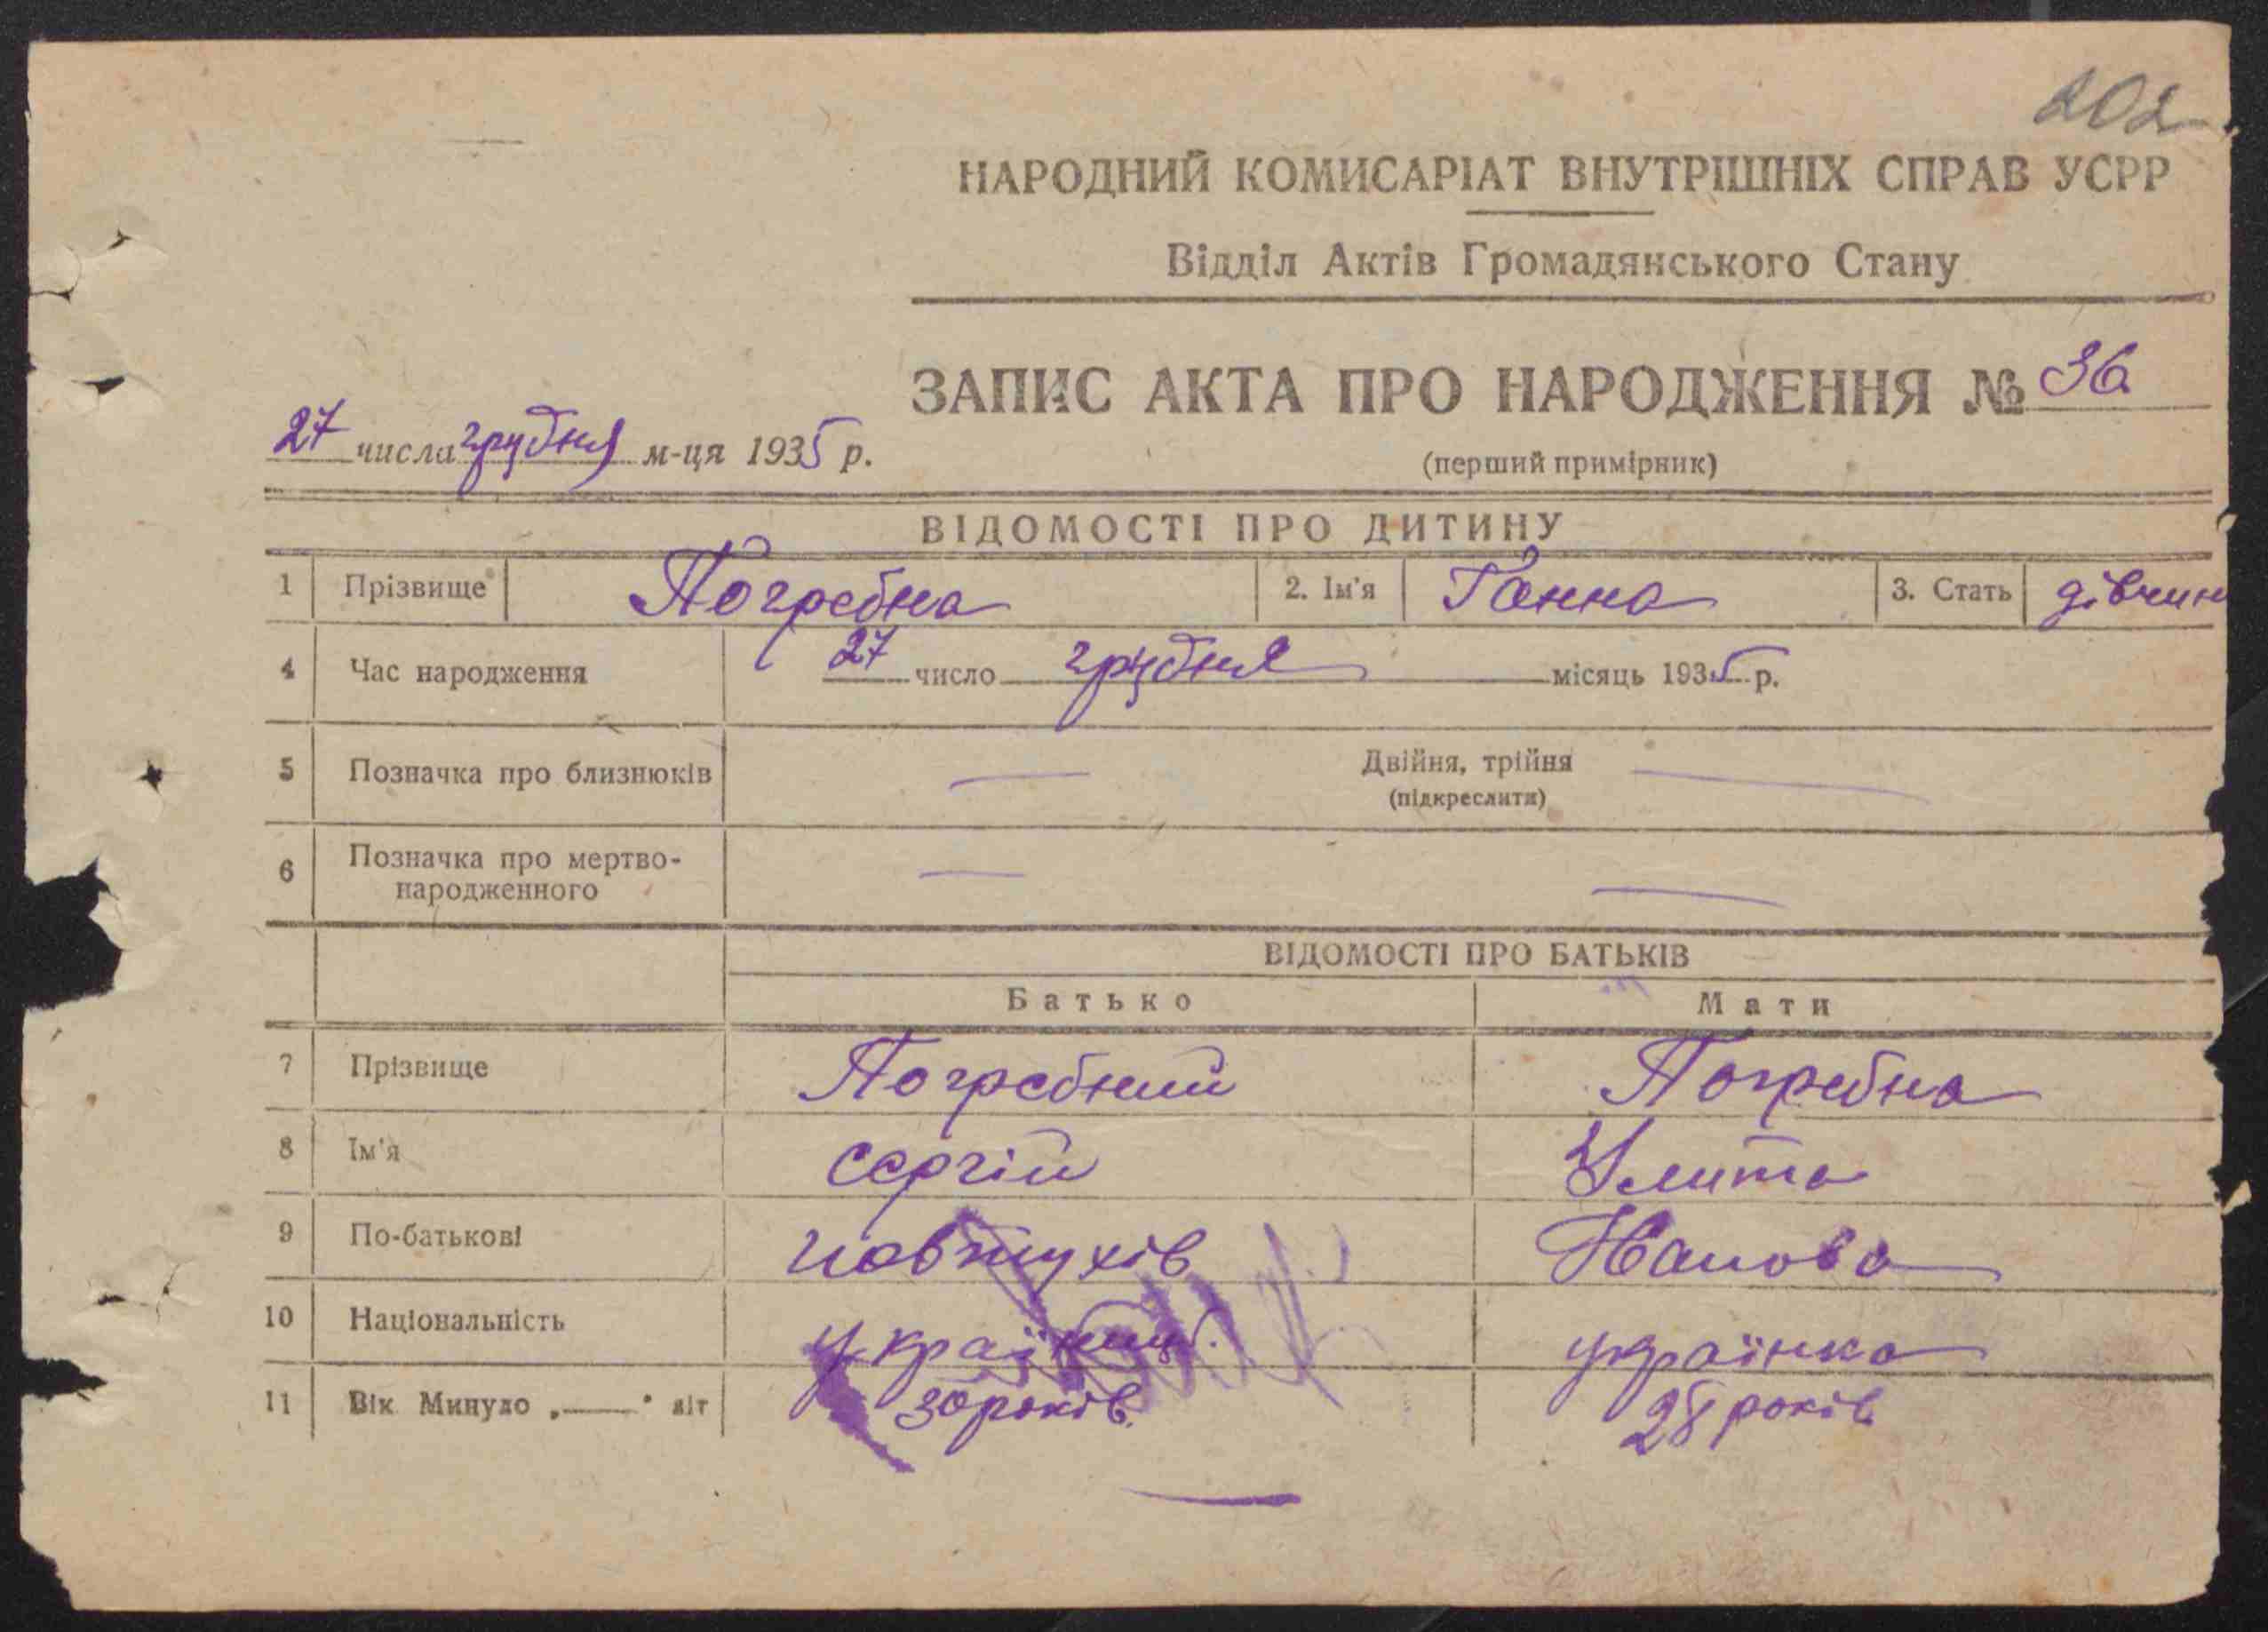 202
НАРОДНИЙ КОМИСАРІАТ ВНУТРІШНІХ СПРАВ УСРР
Відділ Актів Громадянського Стану
ЗАПИС АКТА ПРО НАРОДЖЕННЯ № 36
27 числа грудня м-ця 1935 р.
(перший примірник)
ВІДОМОСТІ ПРО ДИТИНУ
1 Прізвище Погребна 2. Ім'я Ганна 3. Стать дівчин
4 Час народження 27 число грудня місяць 1935 р.
5 Позначка про близнюків — Двійня, трійня —
(підкреслити)
6 Позначка про мертво-
народженного — —
ВІДОМОСТІ ПРО БАТЬКІВ
Батько Мати
7 Прізвище Погребний Погребна
8 Ім'я Сергій Улита
9 По-батькові Йовтухів Іванова
10 Національність українец. українка
11 Вік Минуло „—" літ 30 років. 28 років